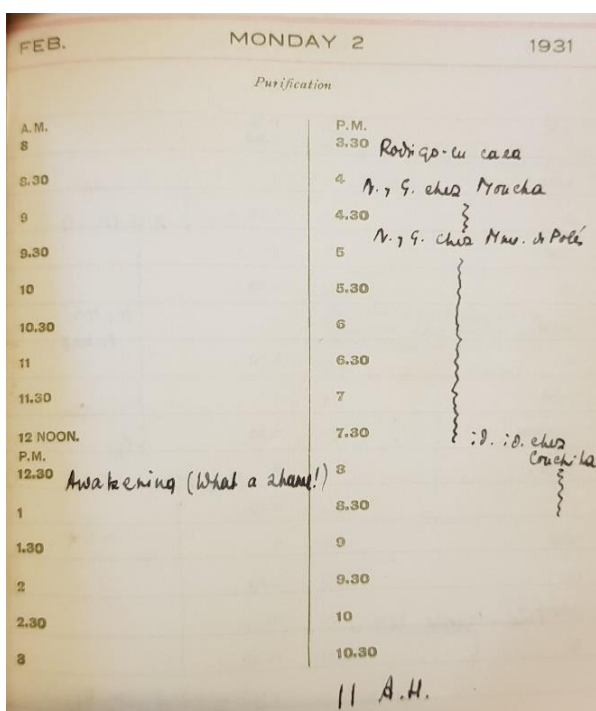 FEB. MONDAY 2 1931
Purification
A.M.
8
8.30
9
9.30
10
10.30
11
11.30
12 NOON.
P.M.
12.30 Awakening (What a shame!)
1
1.30
2
2.30
3
P.M.
3.30 Rodrigo-en casa
4 N. y G. chez Moucha
4.30
N. y G. chez Mme. de Polés
5
5.30
6
6.30
7
7.30 id. id. chez
Conchita
8
8.30
9
9.30
10
10.30
11 A.H.